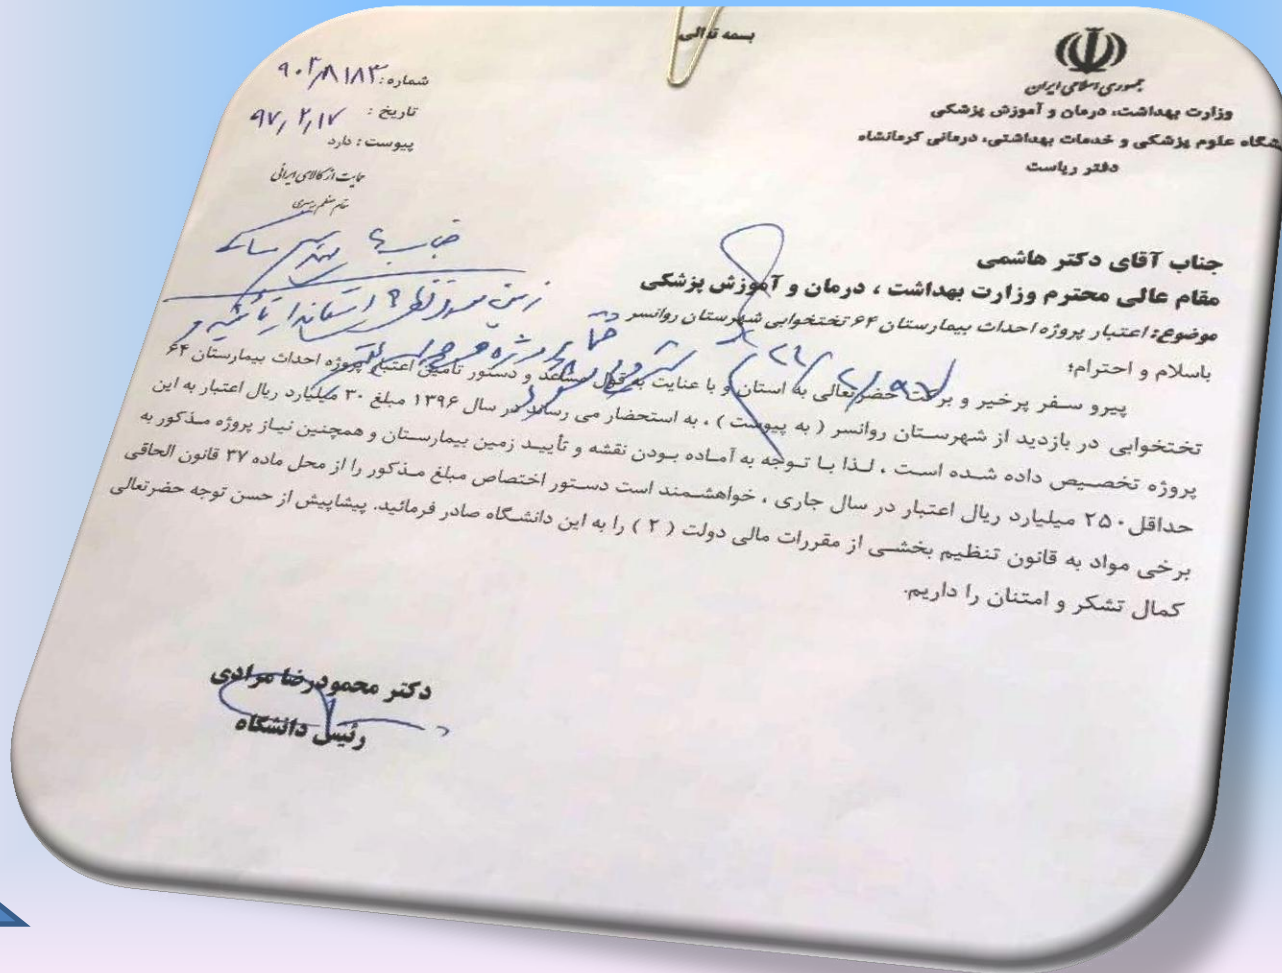 بسمه تعالی
جمهوری اسلامی ایران
وزارت بهداشت، درمان و آموزش پزشکی
شگاه علوم پزشکی و خدمات بهداشتی، درمانی کرمانشاه
دفتر ریاست
شماره:
تاریخ : ۹۷/۲/۱۷
پیوست : دارد
حمایت از کالای ایرانی
مقام معظم رهبری
جناب آقای دکتر هاشمی
مقام عالی محترم وزارت بهداشت ، درمان و آموزش پزشکی
موضوع: اعتبار پروژه احداث بیمارستان ۶۴ تختخوابی شهرستان روانسر
باسلام و احترام؛
پیرو سفر پرخیر و برکت حضرتعالی به استان و با عنایت به قول مساعد و دستور تأمین اعتبار پروژه احداث بیمارستان ۶۴
تختخوابی در بازدید از شهرستان روانسر ( به پیوست ) ، به استحضار می رساند در سال ۱۳۹۶ مبلغ ۳۰ میلیارد ریال اعتبار به این
پروژه تخصیص داده شده است ، لذا با توجه به آماده بودن نقشه و تأیید زمین بیمارستان و همچنین نیاز پروژه مذکور به
حداقل ۲۵۰ میلیارد ریال اعتبار در سال جاری ، خواهشمند است دستور اختصاص مبلغ مذکور را از محل ماده ۳۷ قانون الحاقی
برخی مواد به قانون تنظیم بخشی از مقررات مالی دولت ( ۲ ) را به این دانشگاه صادر فرمائید. پیشاپیش از حسن توجه حضرتعالی
کمال تشکر و امتنان را داریم.
دکتر محمودرضا مرادی
رئیس دانشگاه